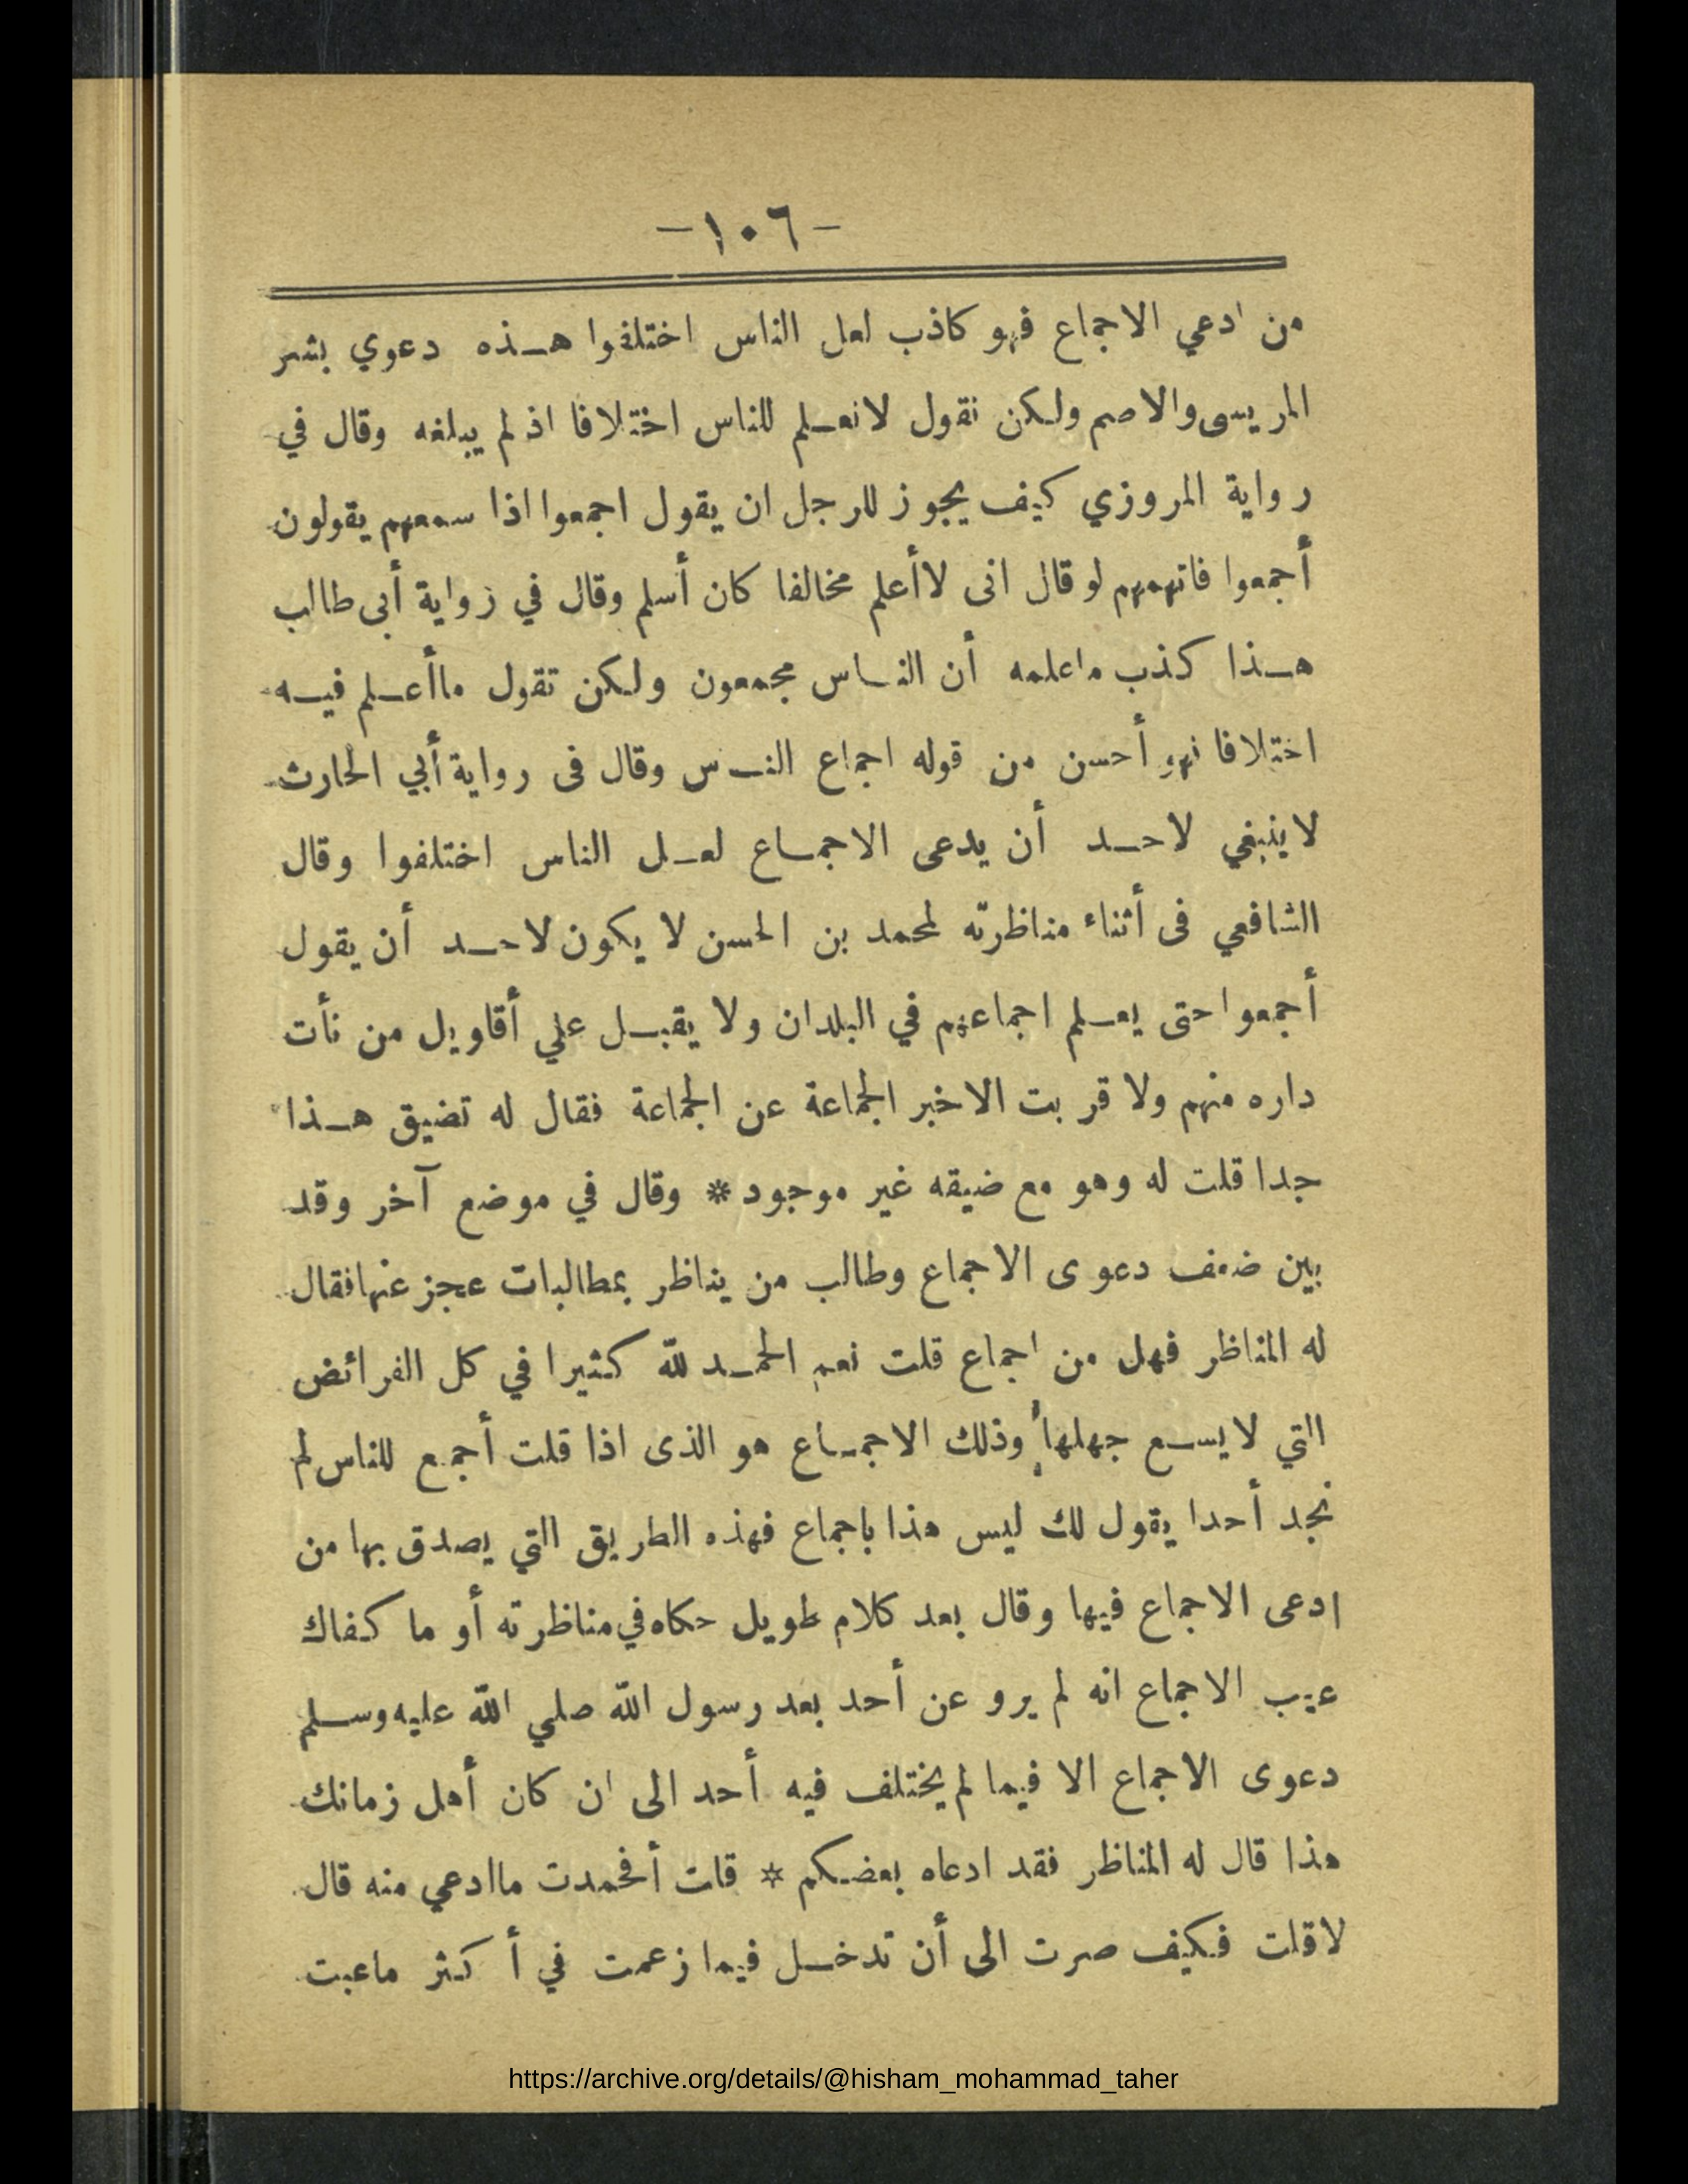 -١٠٦-
من ادعي الاجماع فهو كاذب لعل الناس اختلفوا هـذه دعوي بشر
المريسى والاصم ولكن نقول لانعـلم للناس اختلافا اذ لم يبلغه وقال في
رواية المروزي كيف يجوز للرجل ان يقول اجمعوا اذا سمعهم يقولون
أجمعوا فاتهمهم لو قال انى لاأعلم مخالفا كان أسلم وقال في زواية أبى طالب
هـذا كذب ماعلمه أن النـاس مجمعون ولكن تقول ماأعـلم فيـه
اختلافا نهو أحسن من قوله اجماع النـس وقال فى رواية أبي الحارث
لاينبغي لاحـد أن يدعى الاجمـاع لعـل الناس اختلفوا وقال
الشافعي فى أثناء مناظرته لمحمد بن الحسن لا يكون لاحـد أن يقول
أجمعوا حتى يعـلم اجماعهم في البلدان ولا يقبـل علي أقاويل من نأت
داره منهم ولا قربت الاخبر الجماعة عن الجماعة فقال له تضيق هـذا
جدا قلت له وهو مع ضيقه غير موجود * وقال في موضع آخر وقد
بين ضعف دعوى الاجماع وطالب من يناظر بمطالبات عجز عنها فقال
له المناظر فهل من اجماع قلت نعم الحمـد لله كثيرا في كل الفرائض
التي لا يسـع جهلها وذلك الاجمـاع هو الذى اذا قلت أجمع للناس لم
نجد أحدا يقول لك ليس هذا باجماع فهذه الطريق التي يصدق بها من
ادعى الاجماع فيها وقال بعد كلام طويل حكاه في مناظرته أو ما كفاك
عيب الاجماع انه لم يرو عن أحد بعد رسول الله صلي الله عليه وسـلم
دعوى الاجماع الا فيما لم يختلف فيه أحد الى ان كان أهل زمانك
هذا قال له المناظر فقد ادعاه بعضكم * قلت أفحمدت ماادعي منه قال
لا قلت فكيف صرت الى أن تدخـل فيما زعمت في أ كثر ماعبت
https://archive.org/details/@hisham_mohammad_taher